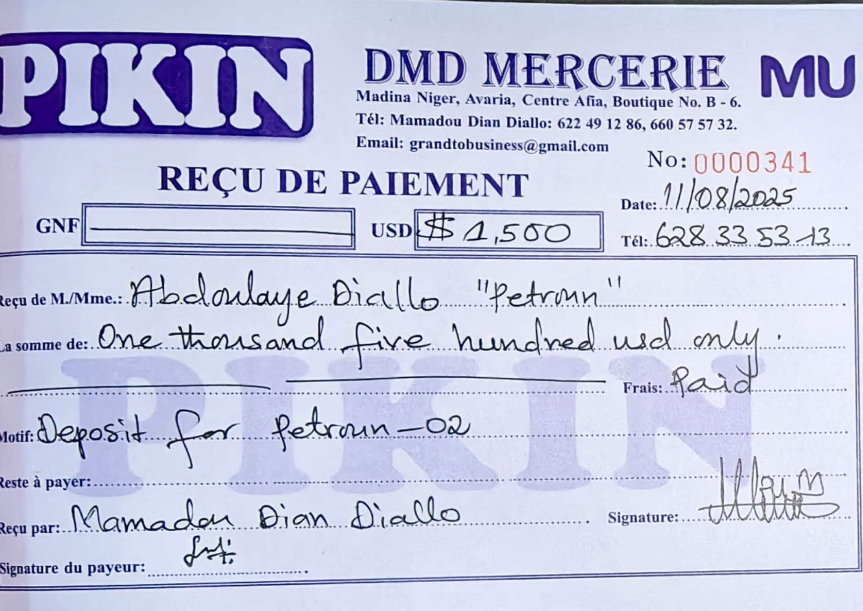 PIKIN
DMD MERCERIE
MU
Madina Niger, Avaria, Centre Afia, Boutique No. B - 6.
Tél: Mamadou Dian Diallo: 622 49 12 86, 660 57 57 32.
Email: grandtobusiness@gmail.com
No: 0000341
REÇU DE PAIEMENT
Date: 11/08/2025
GNF
USD $ 1,500
Tél: 628 33 53 13
Reçu de M./Mme.: Abdoulaye Diallo "Petroun"
La somme de: One thousand five hundred usd only.
Frais: Paid
Motif: Deposit for Petroun-02
Reste à payer:
Reçu par: Mamadou Dian Diallo
Signature:
Signature du payeur:
PIKIN